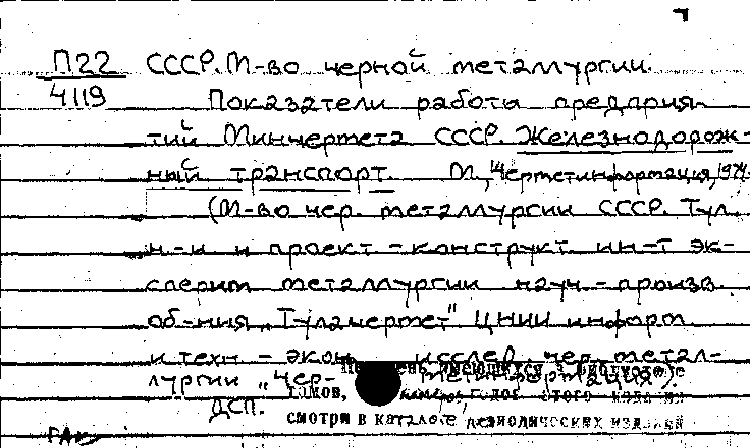 П22 СССР. М-во черной металлургии.
4119 Показатели работы предприя-
тий Минчермета СССР. Железнодорож-
ный транспорт. М., "Черметинформация",
(М-во чер. металлургии СССР. Тул.
н.-и и проект.-конструкт. ин-т эк-
сперим металлургии науч.-произв.
об-ния „Тулачермет" ЦНИИ информ
и техн.-экон. исслед. чер. метал-
лургии „Чер- метинформация").
ДСП.
имеющихся в
томов, номеров, годов этого издания
смотри в каталоге периодических изданий